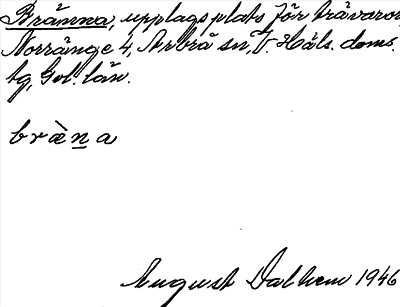 Brämna, upplagsplats för trävaror
Norränge 4, Arbrå sn, V. Häls. doms.
tg, Gvl. län.
bràna
August Dalhem 1946